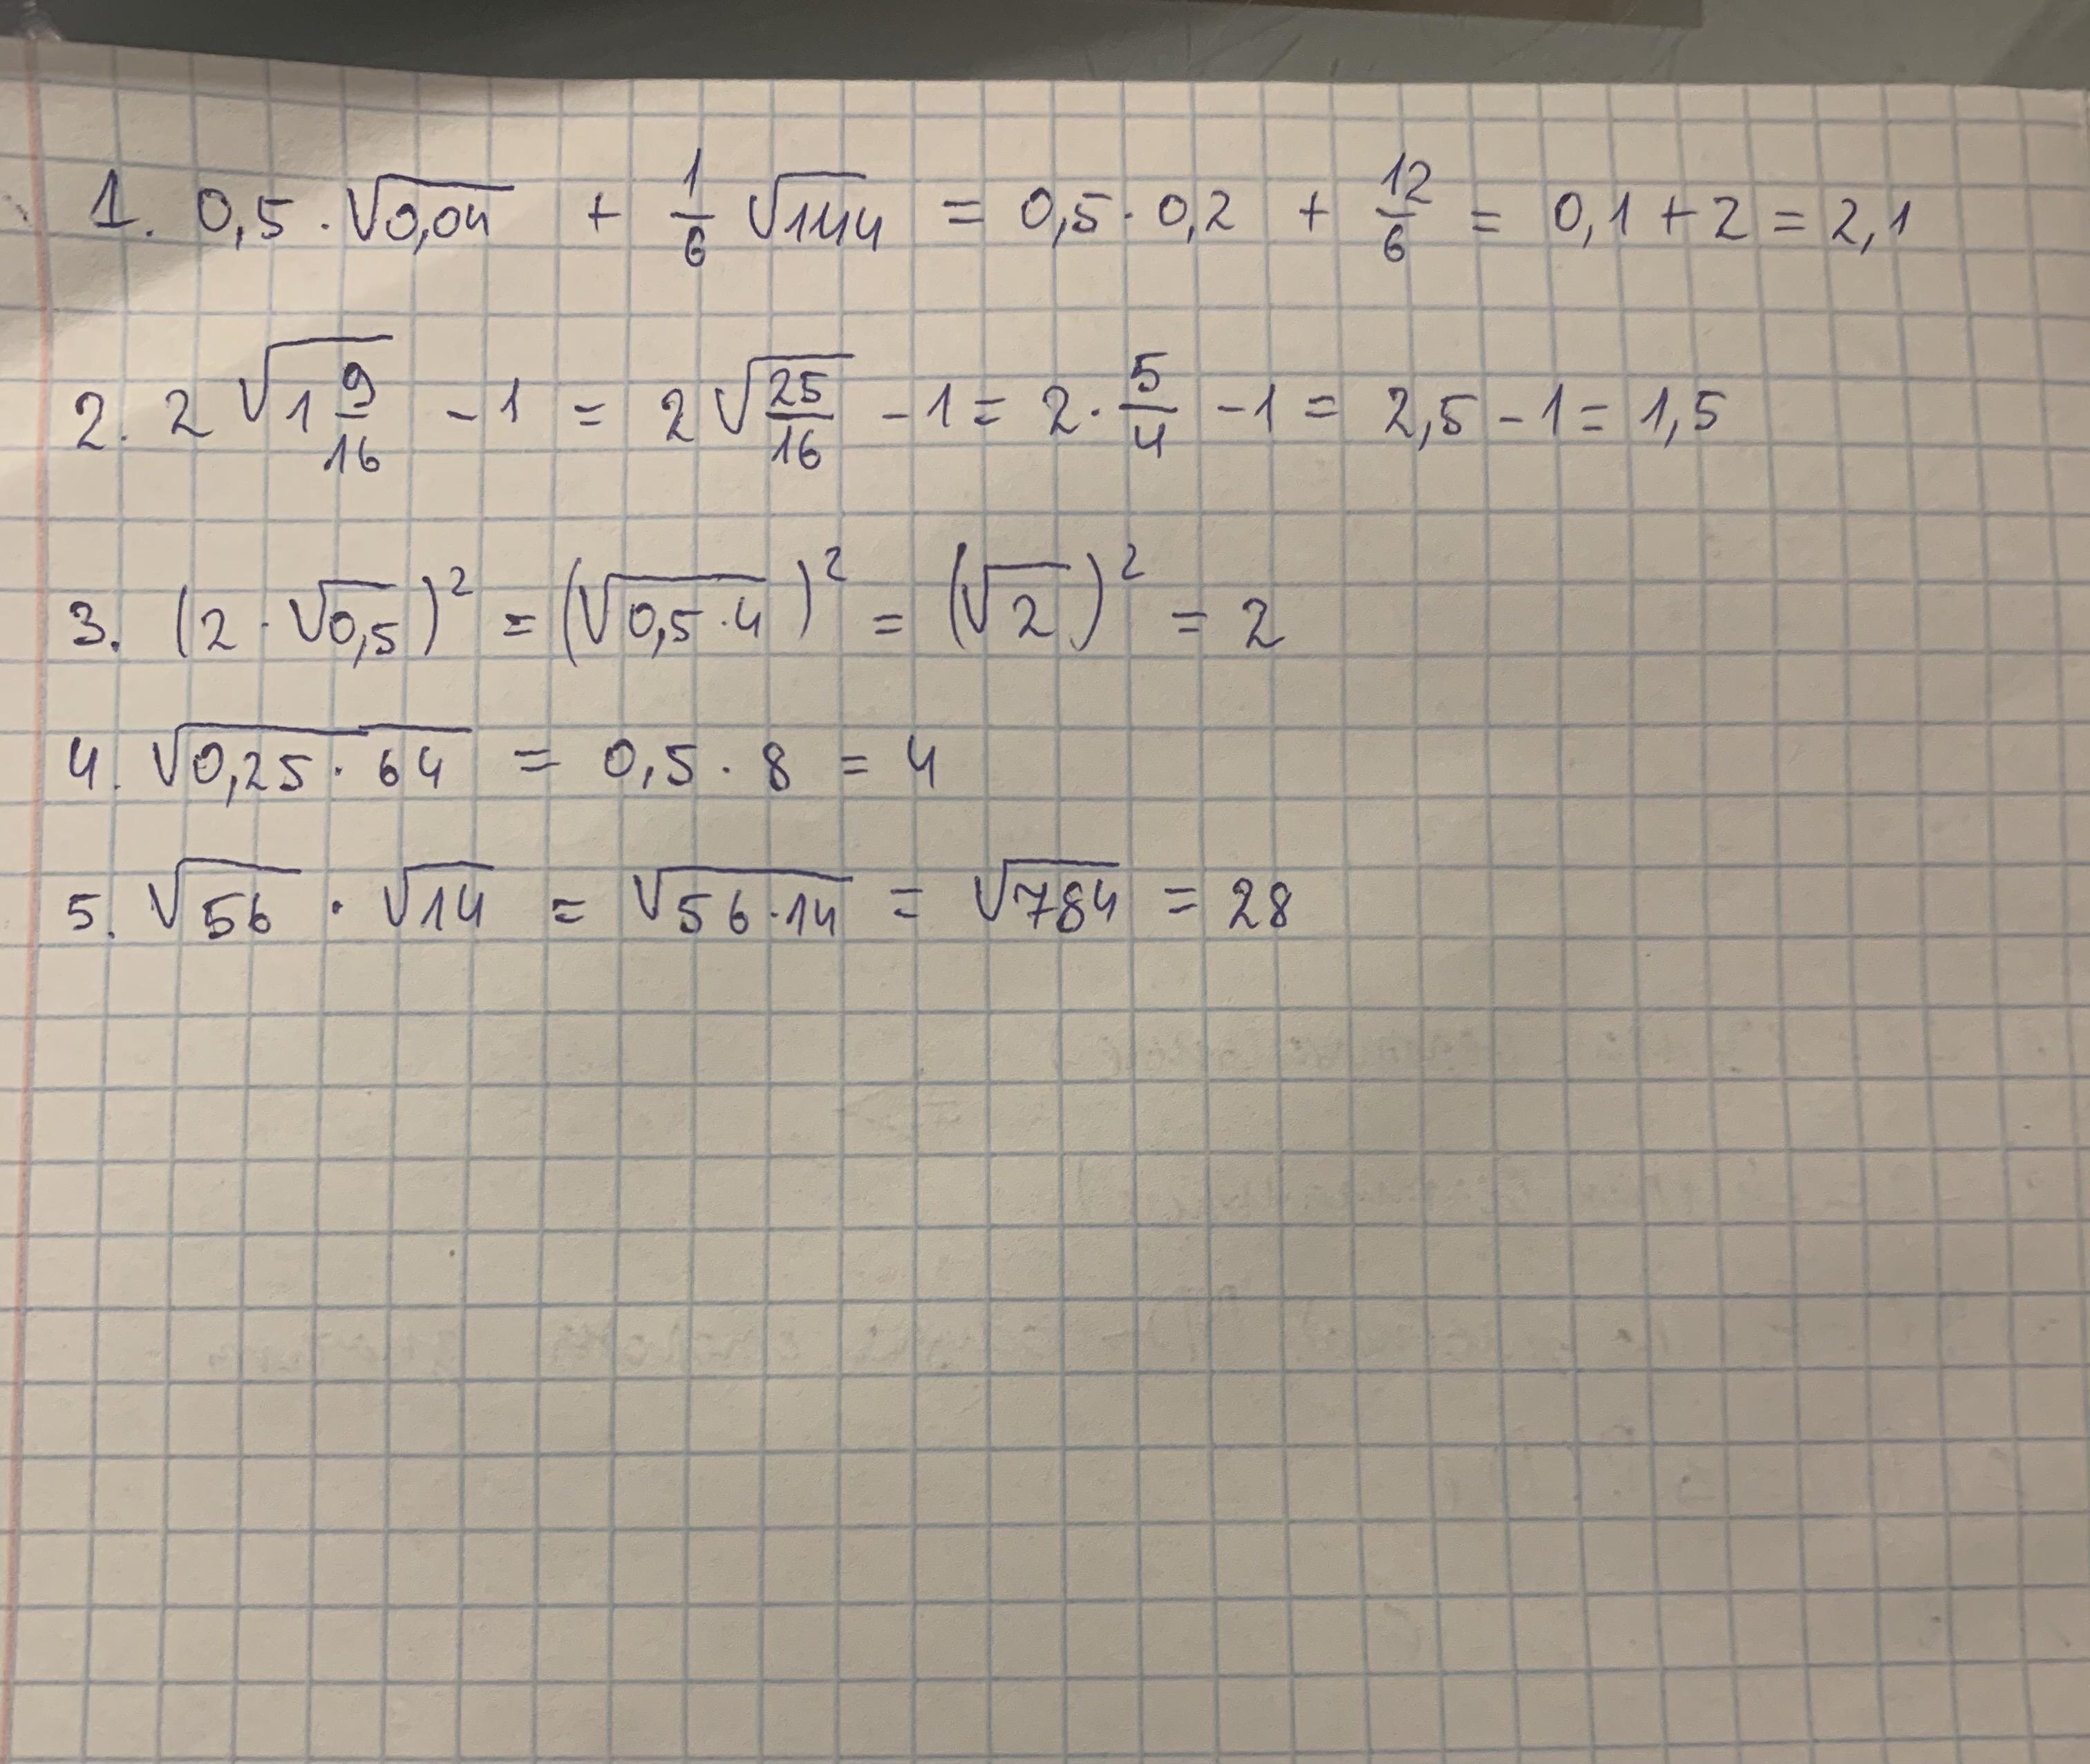 1. 0,5 · √0,04 + 1/6 √144 = 0,5 · 0,2 + 12/6 = 0,1 + 2 = 2,1
2. 2 √(1 9/16) - 1 = 2 √(25/16) - 1 = 2 · 5/4 - 1 = 2,5 - 1 = 1,5
3. (2 · √0,5)² = (√(0,5 · 4))² = (√2)² = 2
4. √(0,25 · 64) = 0,5 · 8 = 4
5. √56 · √14 = √(56 · 14) = √784 = 28